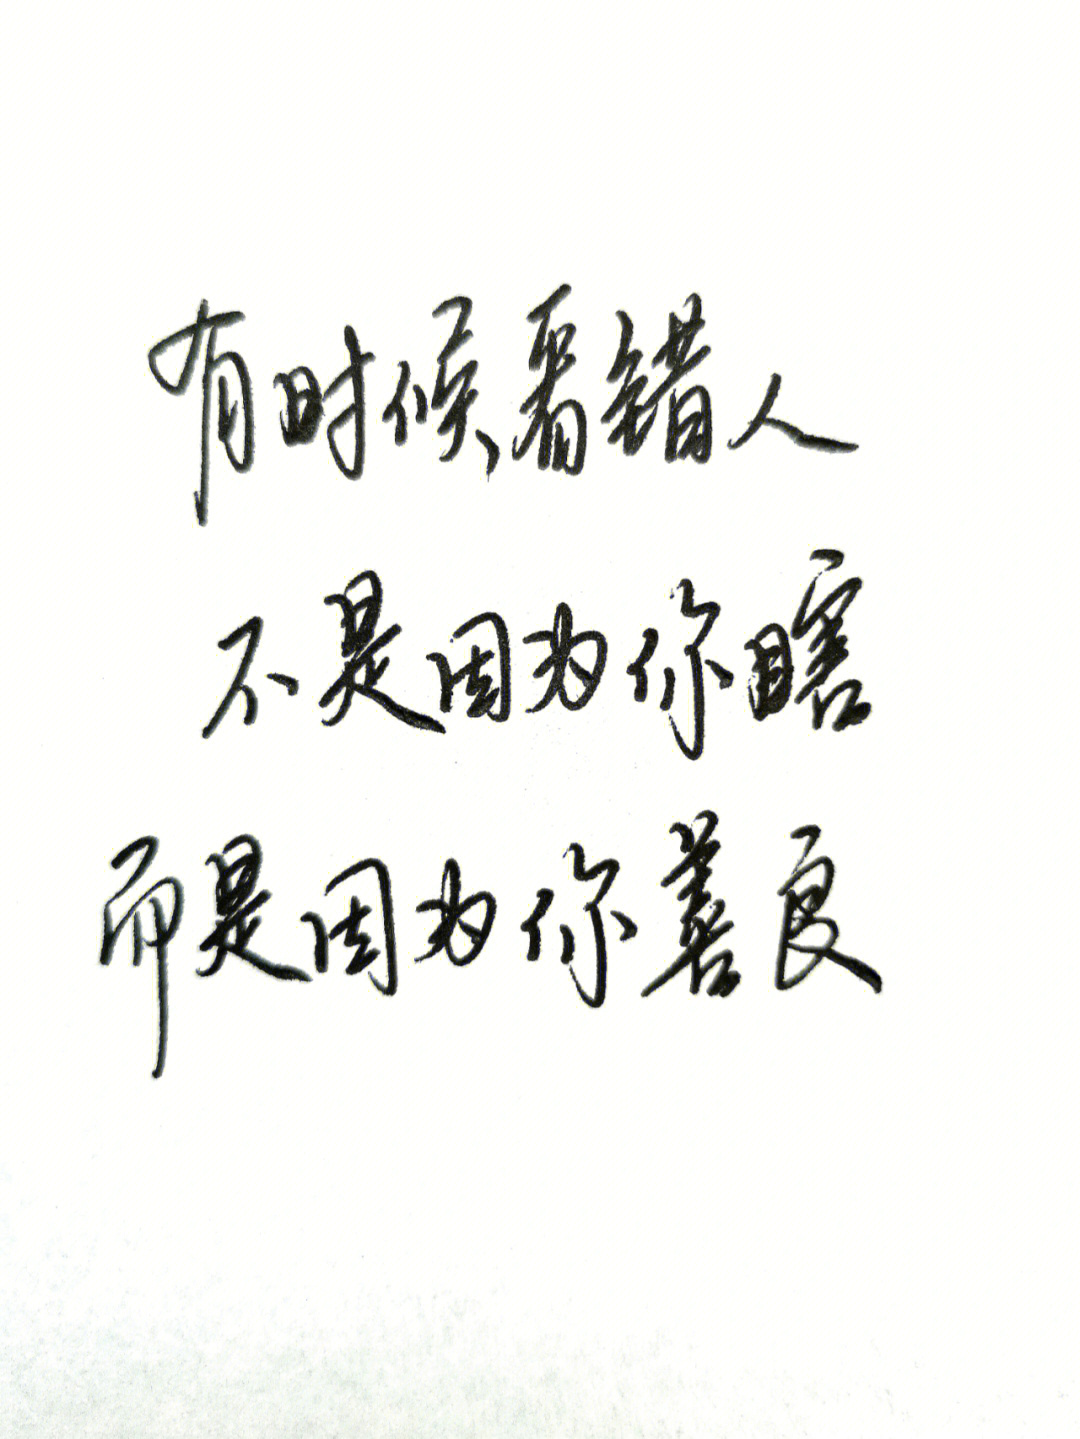 有时候看错人
不是因为你瞎
而是因为你善良